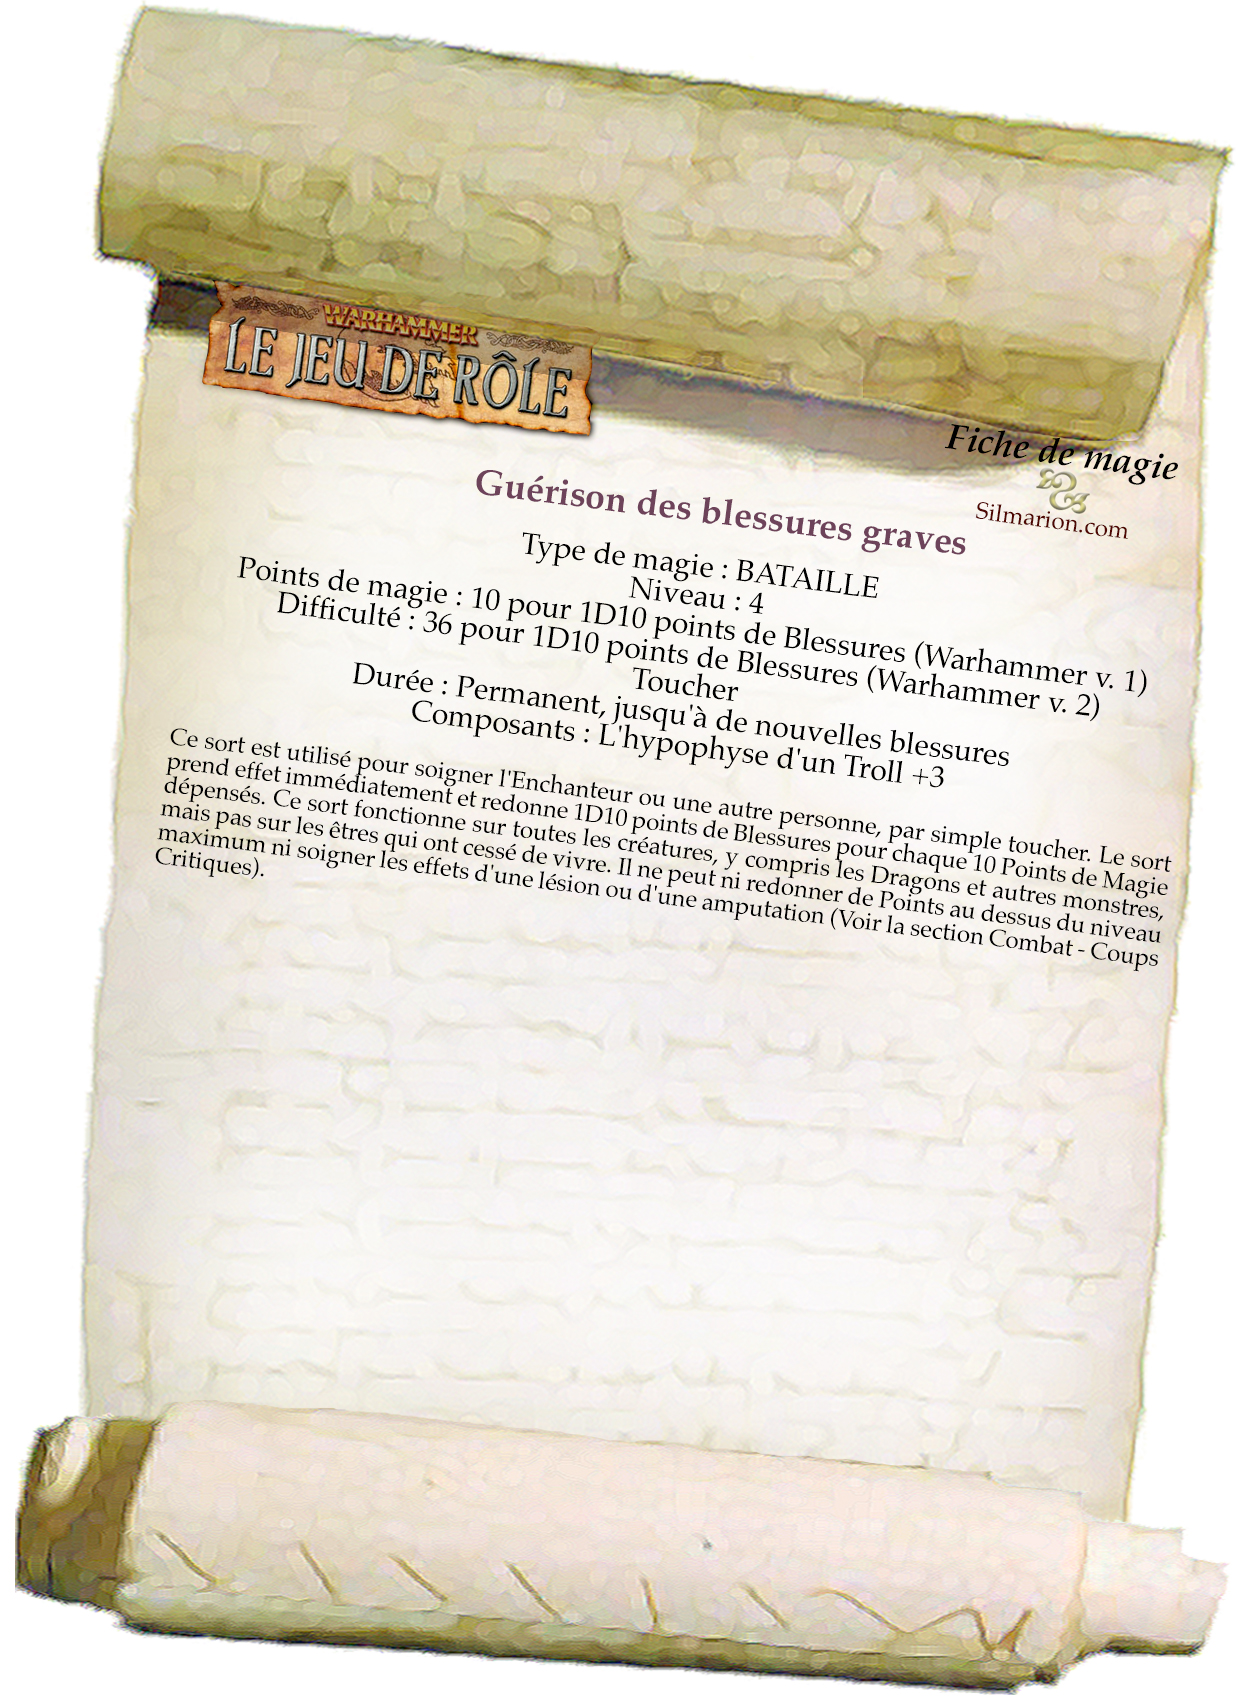 WARHAMMER
LE JEU DE RÔLE
Fiche de magie
Silmarion.com
Guérison des blessures graves
Type de magie : BATAILLE
Niveau : 4
Points de magie : 10 pour 1D10 points de Blessures (Warhammer v. 1)
Difficulté : 36 pour 1D10 points de Blessures (Warhammer v. 2)
Toucher
Durée : Permanent, jusqu'à de nouvelles blessures
Composants : L'hypophyse d'un Troll +3
Ce sort est utilisé pour soigner l'Enchanteur ou une autre personne, par simple toucher. Le sort
prend effet immédiatement et redonne 1D10 points de Blessures pour chaque 10 Points de Magie
dépensés. Ce sort fonctionne sur toutes les créatures, y compris les Dragons et autres monstres,
mais pas sur les êtres qui ont cessé de vivre. Il ne peut ni redonner de Points au dessus du niveau
maximum ni soigner les effets d'une lésion ou d'une amputation (Voir la section Combat - Coups
Critiques).